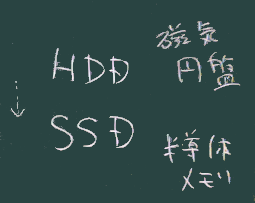 HDD 磁気
円盤
↓
SSD 半導体
メモリ